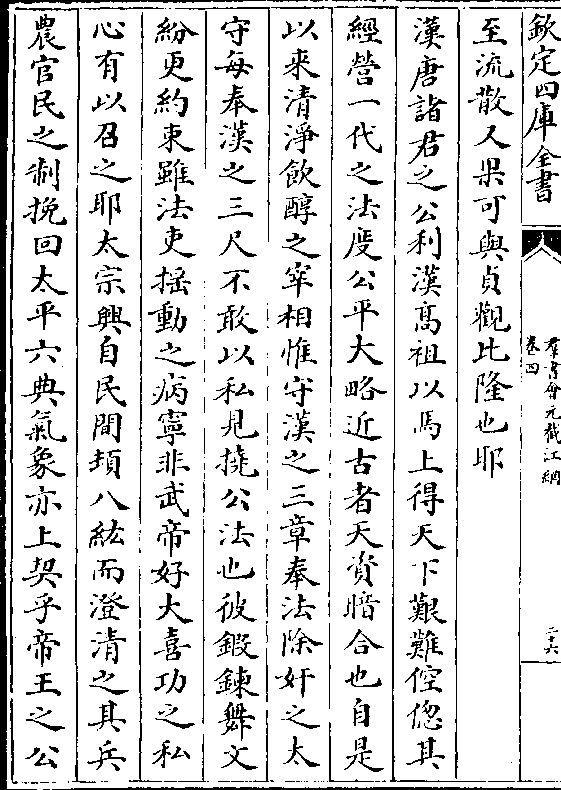 欽定四庫全書
羣書會元截江網
卷四
二十六
至流散又果可與貞觀比隆也耶
漢唐諸君之公利漢髙祖以馬上得天下艱難倥偬其
經營一代之法度公平大略近古者天資暗合也自是
以来清淨飲醇之宰相惟守漢之三章奉法除奸之太
守每奉漢之三尺不敢以私見撓公法也彼鍛鍊舞文
紛更約束雖法吏揺動之病寧非武帝好大喜功之私
心有以召之耶太宗興自民間頫八紘而澄清之其兵
農官民之制挽回太平六典氣象亦上契乎帝王之公